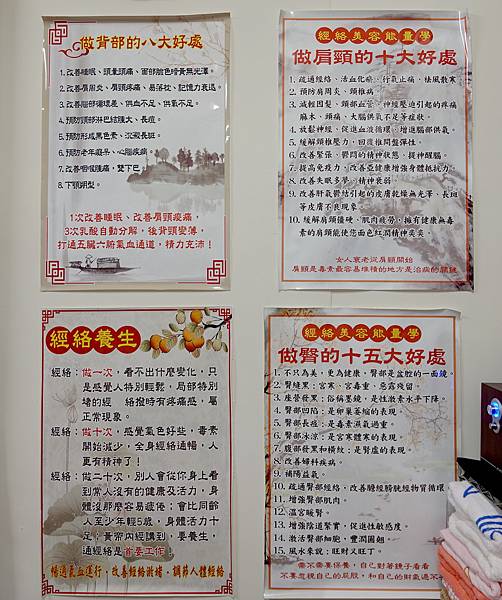 做背部的八大好處
1.改善睡眠、頭暈頭痛、面部臉色暗黃無光澤。
2.改善肩周炎、肩頸疼痛、易落枕、記憶力衰退。
3.改善腦部循環差、供血不足、供氧不足。
4.預防頸部淋巴結腫大、長痘。
5.預防形成黑色素、沉澱長斑。
6.預防老年癡呆、心腦疾病。
7.改善咽喉腫痛，雙下巴。
8.下顎朔型。
1次改善睡眠、改善肩頸痠痛，
3次乳酸自動分解，後背頸變薄，
打通五臟六腑氣血通道，精力充沛！
經絡美容能量學
做肩頸的十大好處
1. 疏通經絡、活血化瘀、行氣止痛、祛風散寒
2. 預防肩周炎、頸椎病
3. 減輕因髮、頸部血管、神經壓迫引起的疼痛
麻木、頭痛、大腦供氧不足等症狀。
4. 放鬆神經，促進血液循環，增進腦部供氧。
5. 緩解頸椎壓力，回復椎間盤彈性。
6. 改善緊張、鬱悶的精神狀態，提神醒腦。
7. 提高免疫力，改善亞健康增強身體抵抗力。
8. 改善失眠多夢、精神衰弱
9. 改善肝氣鬱結引起的皮膚乾燥無光澤、長斑
等皮膚不良現象。
10. 緩解肩頸僵硬、肌肉疲勞，擁有健康無毒
素的肩頸能使您面色紅潤精神奕奕。
女人衰老從肩頸開始
肩頸是毒素最容易堆積的地方是治病的關鍵
經絡養生
經絡：做一次，看不出什麼變化，只
是感覺人特別輕鬆，局部特別
堵的經 絡撥時有疼痛感，屬
正常現象。
經絡：做十次，感覺氣色好些，毒素
開始減少，全身經絡通暢，人
更有精神了！
經絡：做二十次，別人會從你身上看
到常人沒有的健康及活力，身
體沒那麼容易疲倦；會比同齡
人至少年輕5歲，身體活力十
足；黃帝內經講到，要養生，
通經絡是首要工作！
暢通氣血運行，改善經絡淤堵，調節人體經絡
經絡美容能量學
做臀的十五大好處
1. 不只為美，更為健康，臀部是盆腔的一面鏡。
2. 臀縫黑：宮寒，宮毒重，惡露殘留。
3. 座督發黑：俗稱墨鏡，是性激素水平下降。
4. 臀部凹陷：是卵巢萎縮的表現。
5. 臀部長痘：是毒素濕氣過重。
6. 臀部冰涼：是宮寒體寒的表現。
7. 腹部發黑和橫紋：是腎虛的表現。
8. 改善婦科疾病。
9. 補陽益氣。
10. 疏通臀部經絡，改善膽經膀胱經物質循環
11. 增強臀部肌肉。
12. 溫宮暖腎。
13. 增強陰道緊實，促進性敏感度。
14. 激活臀部細胞，豐潤圓翹。
15. 風水來說：旺財又旺丁。
需不需要保養，自己對著鏡子看看
不要忽視自己的屁股，和自己的財氣過不